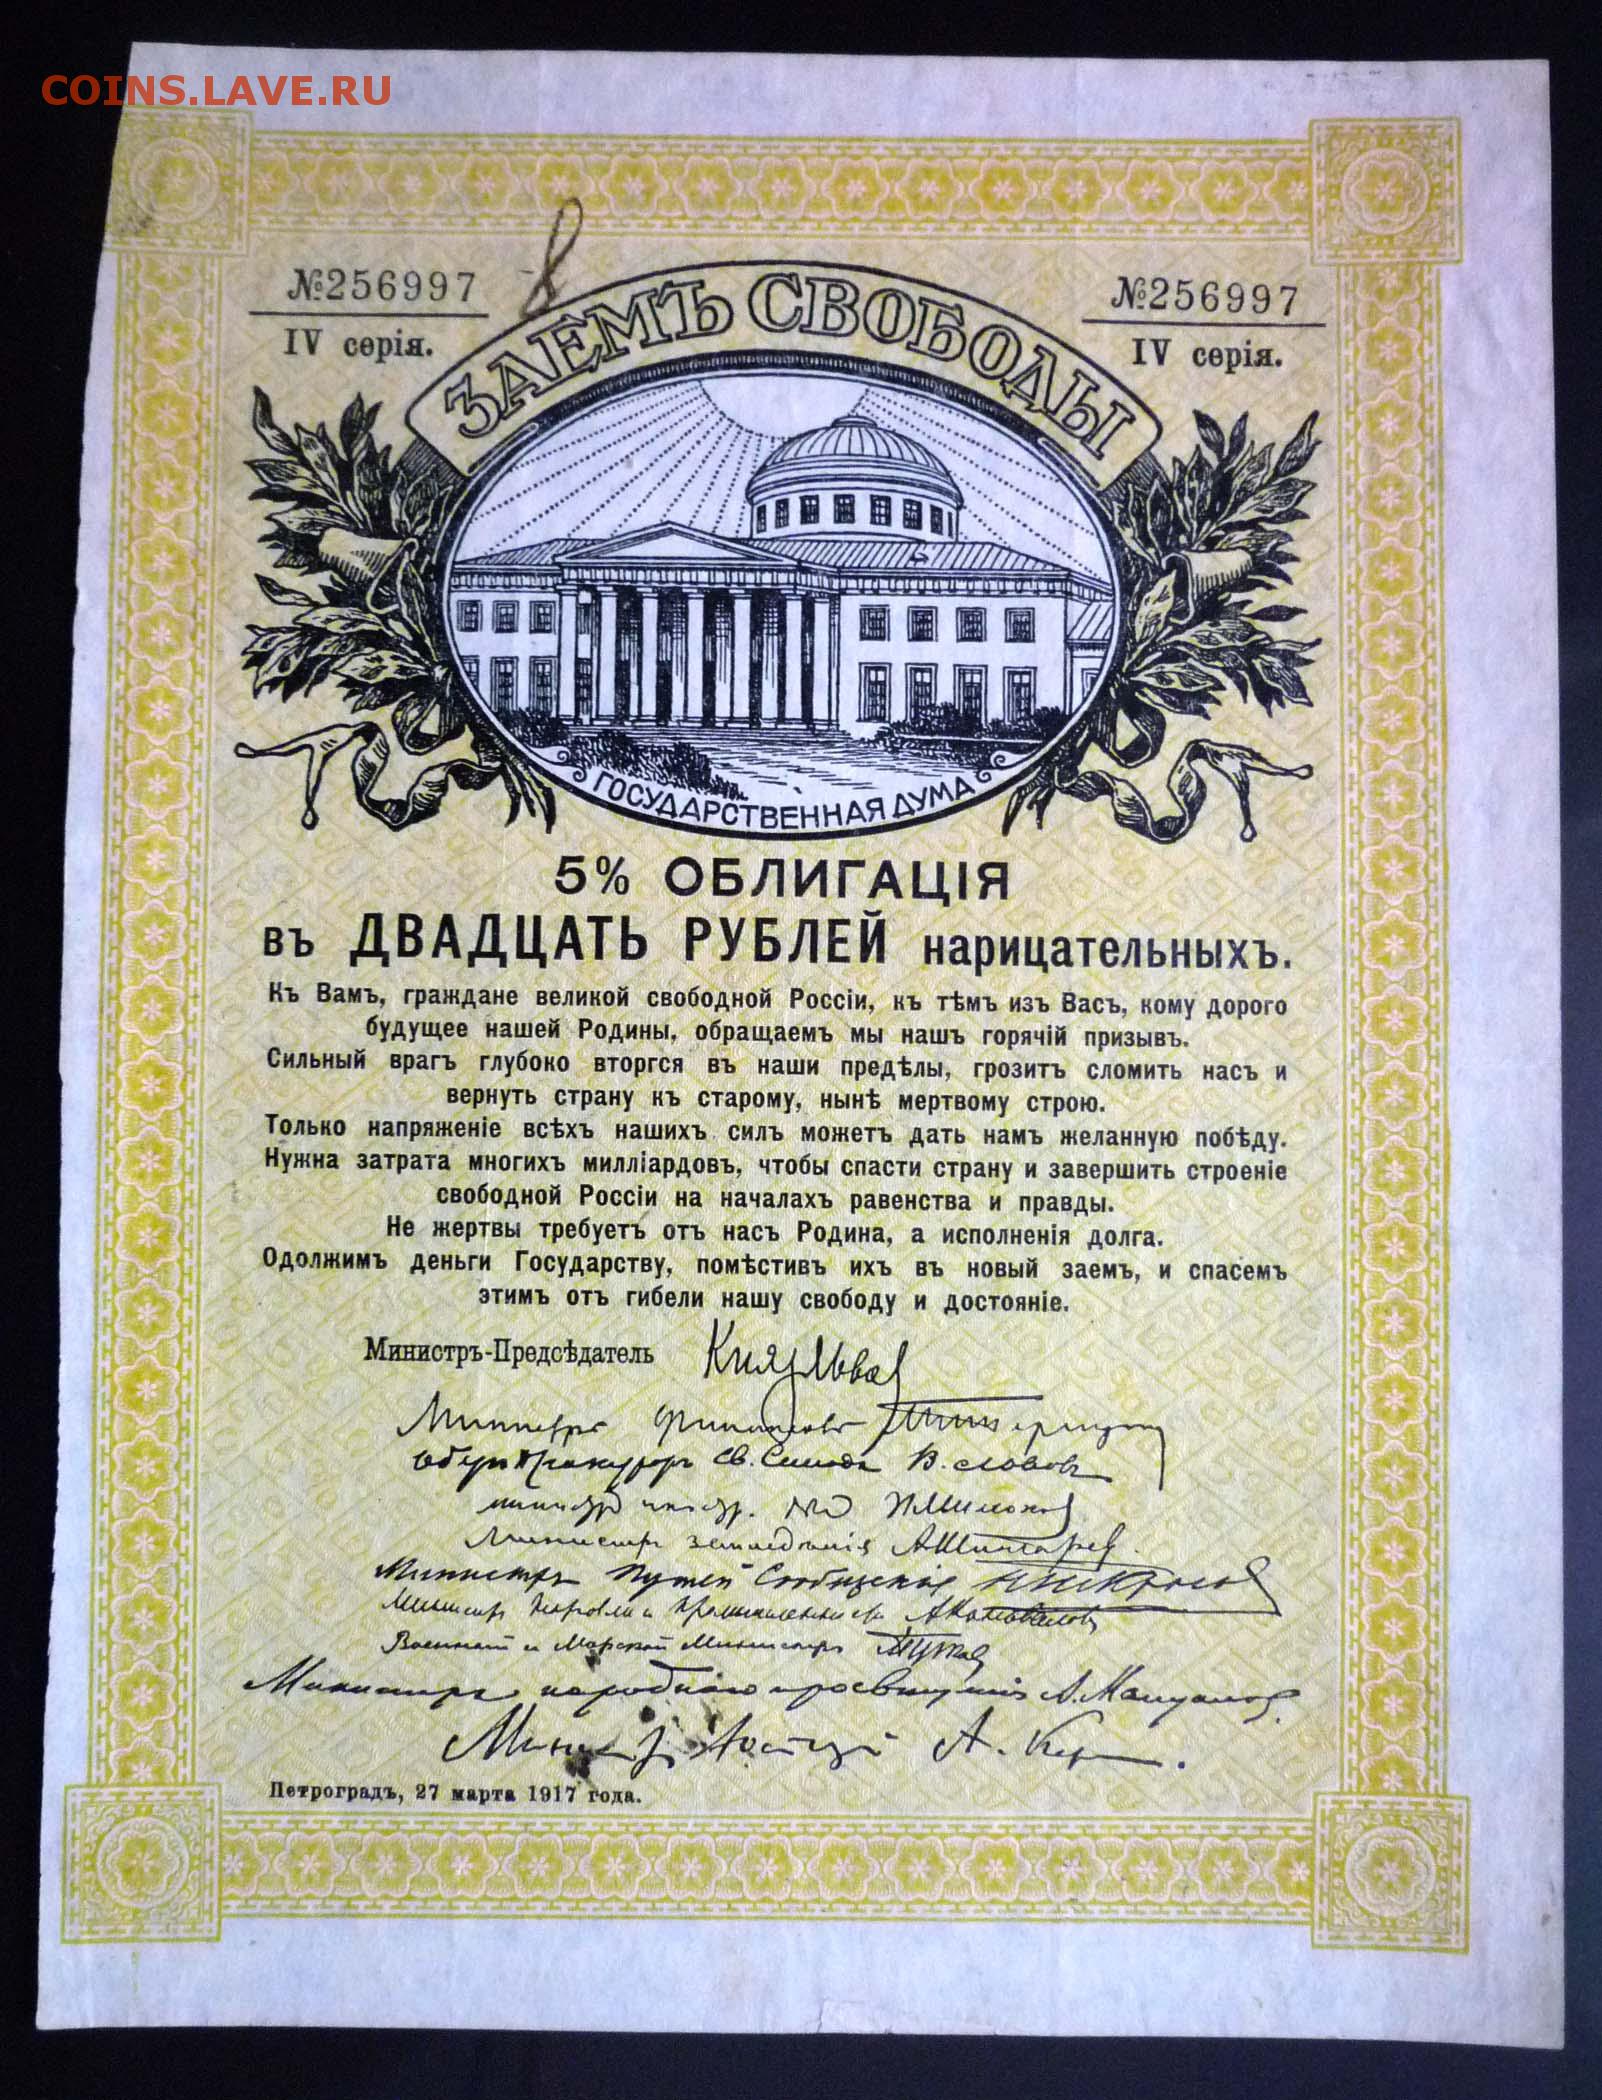 COINS.LAVE.RU
8
№256997
IV серія.
№256997
IV серія.
ЗАЕМЪ СВОБОДЫ
ГОСУДАРСТВЕННАЯ ДУМА
5% ОБЛИГАЦІЯ
въ ДВАДЦАТЬ РУБЛЕЙ нарицательныхъ.
Къ Вамъ, граждане великой свободной Россіи, къ тѣмъ изъ Васъ, кому дорого
будущее нашей Родины, обращаемъ мы нашъ горячій призывъ.
Сильный врагъ глубоко вторгся въ наши предѣлы, грозитъ сломить насъ и
вернуть страну къ старому, нынѣ мертвому строю.
Только напряженіе всѣхъ нашихъ силъ можетъ дать намъ желанную побѣду.
Нужна затрата многихъ милліардовъ, чтобы спасти страну и завершить строеніе
свободной Россіи на началахъ равенства и правды.
Не жертвы требуетъ отъ насъ Родина, а исполненія долга.
Одолжимъ деньги Государству, помѣстивъ ихъ въ новый заемъ, и спасемъ
этимъ отъ гибели нашу свободу и достояніе.
Министръ-Предсѣдатель Князь Львов
Министръ финансовъ
Оберъ Прокуроръ Св. Синода В. Львовъ
министр иностр. П Милюков
Министръ земледѣлія А Шингарев
Министръ Путей Сообщенія Н Некрасов
Министръ Торговли и Промышленности А Коновалов
Военный и Морской Министръ
Министръ народнаго просвѣщенія А. Мануилов.
Министр Юстиціи А. Керен
Петроградъ, 27 марта 1917 года.